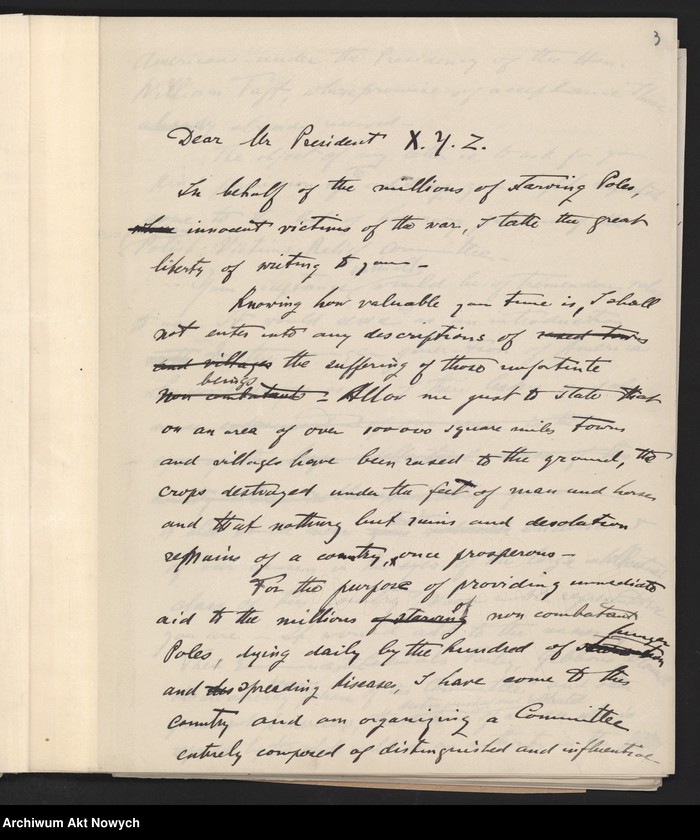 3
Dear Mr President X.Y.Z.
In behalf of the millions of starving Poles,
innocent victims of the war, I take the great
liberty of writing to you –
Knowing how valuable you time is, I shall
not enter into any descriptions of rased towns
and villages the suffering of those unfortunte
beings
non combatants – Allow me just to state that
on an area of over 100000 square miles towns
and villages have been rased to the ground, the
crops destroyed under the feet of man and horses
and that nothing but ruins and desolation
remains of a country, once prosperous –
For the purpose of providing immediate
of
aid to the millions of starving non combatant
hunger
Poles, dying daily by the hundred of starvation
and spreading diseases, I have come to this
country and am organizing a Committee
entirely composed of distinguished and influential
Archiwum Akt Nowych